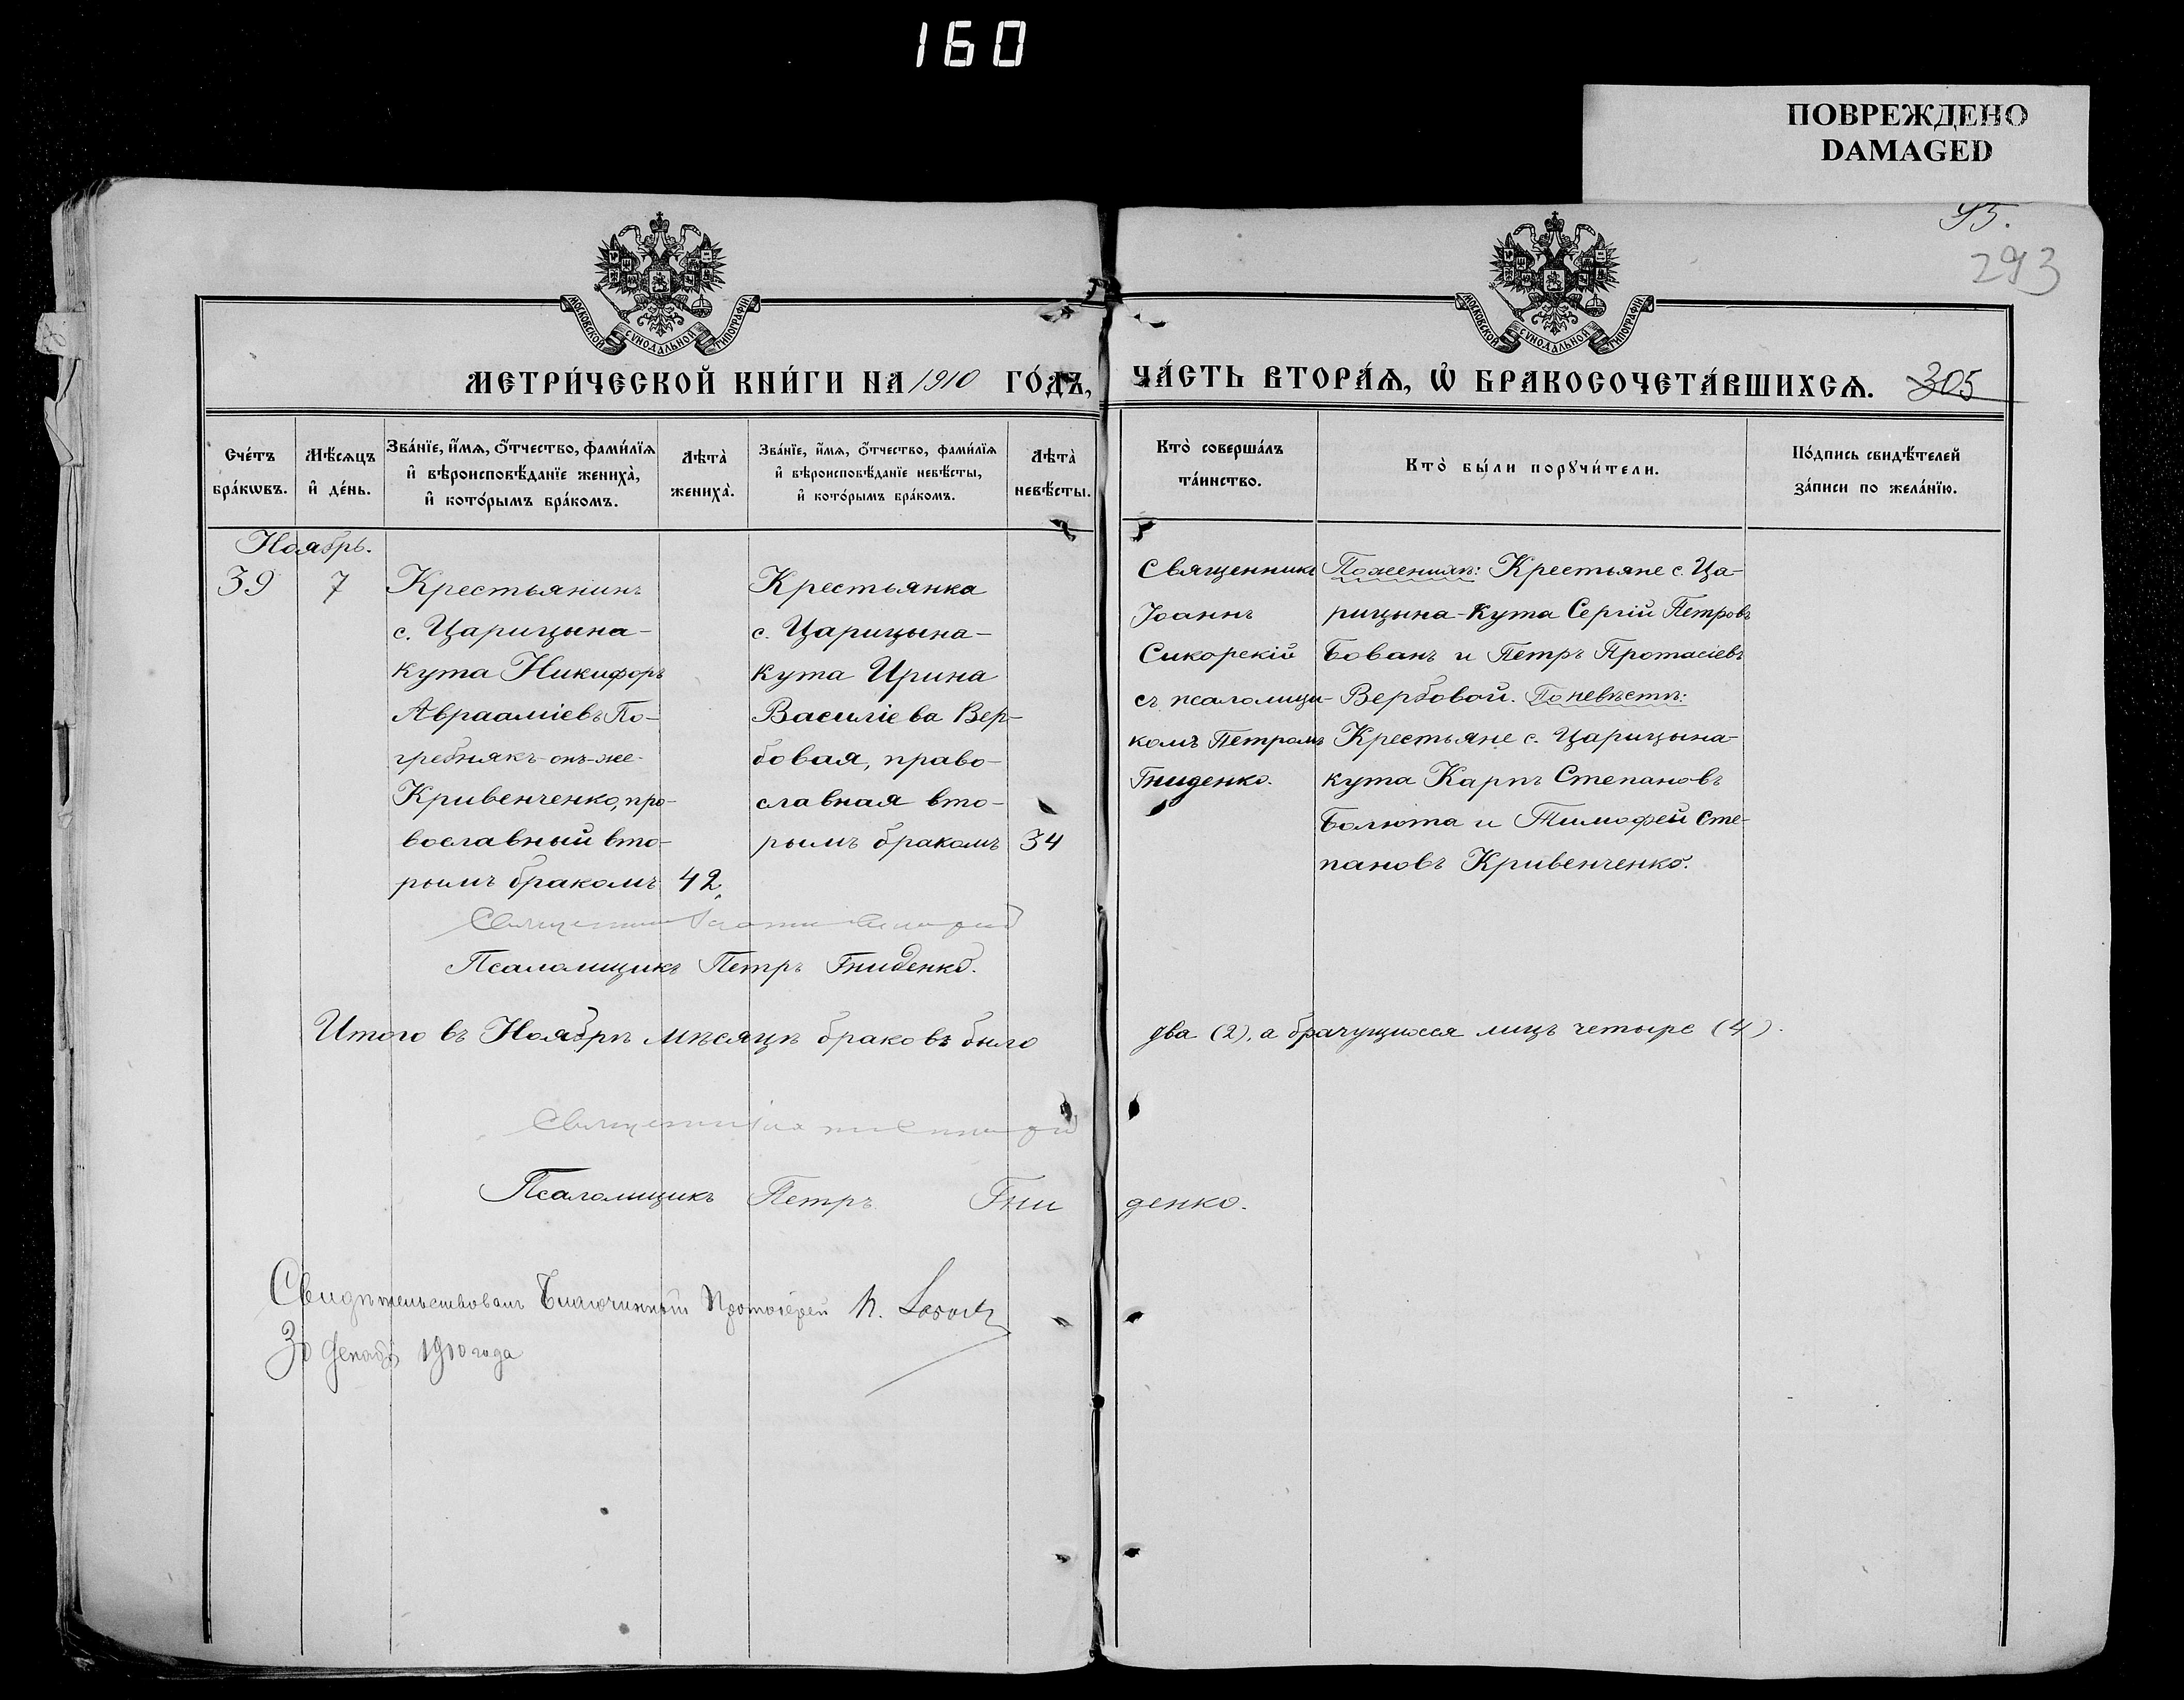 160
ПОВРЕЖДЕНО
DAMAGED
95.
293
МОСКОВСКОЙ СѴНОДАЛЬНОЙ ТИПОГРАФІИ
МОСКОВСКОЙ СѴНОДАЛЬНОЙ ТИПОГРАФІИ
МЕТРИ́ЧЕСКОЙ КНИ́ГИ НА 1910 ГО́ДЪ,
ЧА́СТЬ ВТОРА́Ѧ, Ѡ҆ БРАКОСОЧЕТА́ВШИХСѦ.
305
Сче́тъ
бра́кѡвъ.
Мѣ́сѧцъ
и҆ де́нь.
Зва́нїе, и҆́мѧ, ѻ҆́тчество, фами́лїѧ
и҆ вѣроисповѣ́данїе жениха̀,
и҆ кото́рымъ бра́комъ.
Лѣта̀
жениха̀.
Зва́нїе, и҆́мѧ, ѻ҆́тчество, фами́лїѧ
и҆ вѣроисповѣ́данїе невѣ́сты,
и҆ кото́рымъ бра́комъ.
Лѣта̀
невѣ́сты.
Кто̀ соверша́лъ
та́инство.
Кто̀ бы́ли порꙋчи́тели.
По́дпись свидѣ́телей
за́писи по жела́нїю.
Ноябрь.
39
7
Крестьянинъ
с. Царицына-
кута Никифоръ
Авраамiевъ По-
гребнякъ-онъ-же-
Кривенченко, про-
вославный вто-
рымъ бракомъ
42
Крестьянка
с. Царицына-
кута Ирина
Василiева Вер-
бовая, право-
славная вто-
рымъ бракомъ
34
Священникъ
Іоаннъ
Сикорскій
съ псаломщи-
комъ Петромъ
Гниденко.
По женихѣ: Крестьяне с. Ца-
рицына-Кута Сергій Петровъ
Бованъ и Петръ Протасіевъ
Вербовой. По невѣстѣ:
Крестьяне с. Царицына-
кута Карпъ Степановъ
Балюта и Тимофей Сте-
пановъ Кривенченко.
Священникъ Іоаннъ Сикорскій
Псаломщикъ Петръ Гниденко.
Итого въ Ноябрѣ мѣсяцѣ браковъ было два (2), а брачущихся лицъ четыре (4).
Священникъ Іоаннъ Сикорскій
Псаломщикъ Петръ Гниденко.
Свидѣтельствовалъ Благочинный Протоіерей
30 Декабр 1910 года